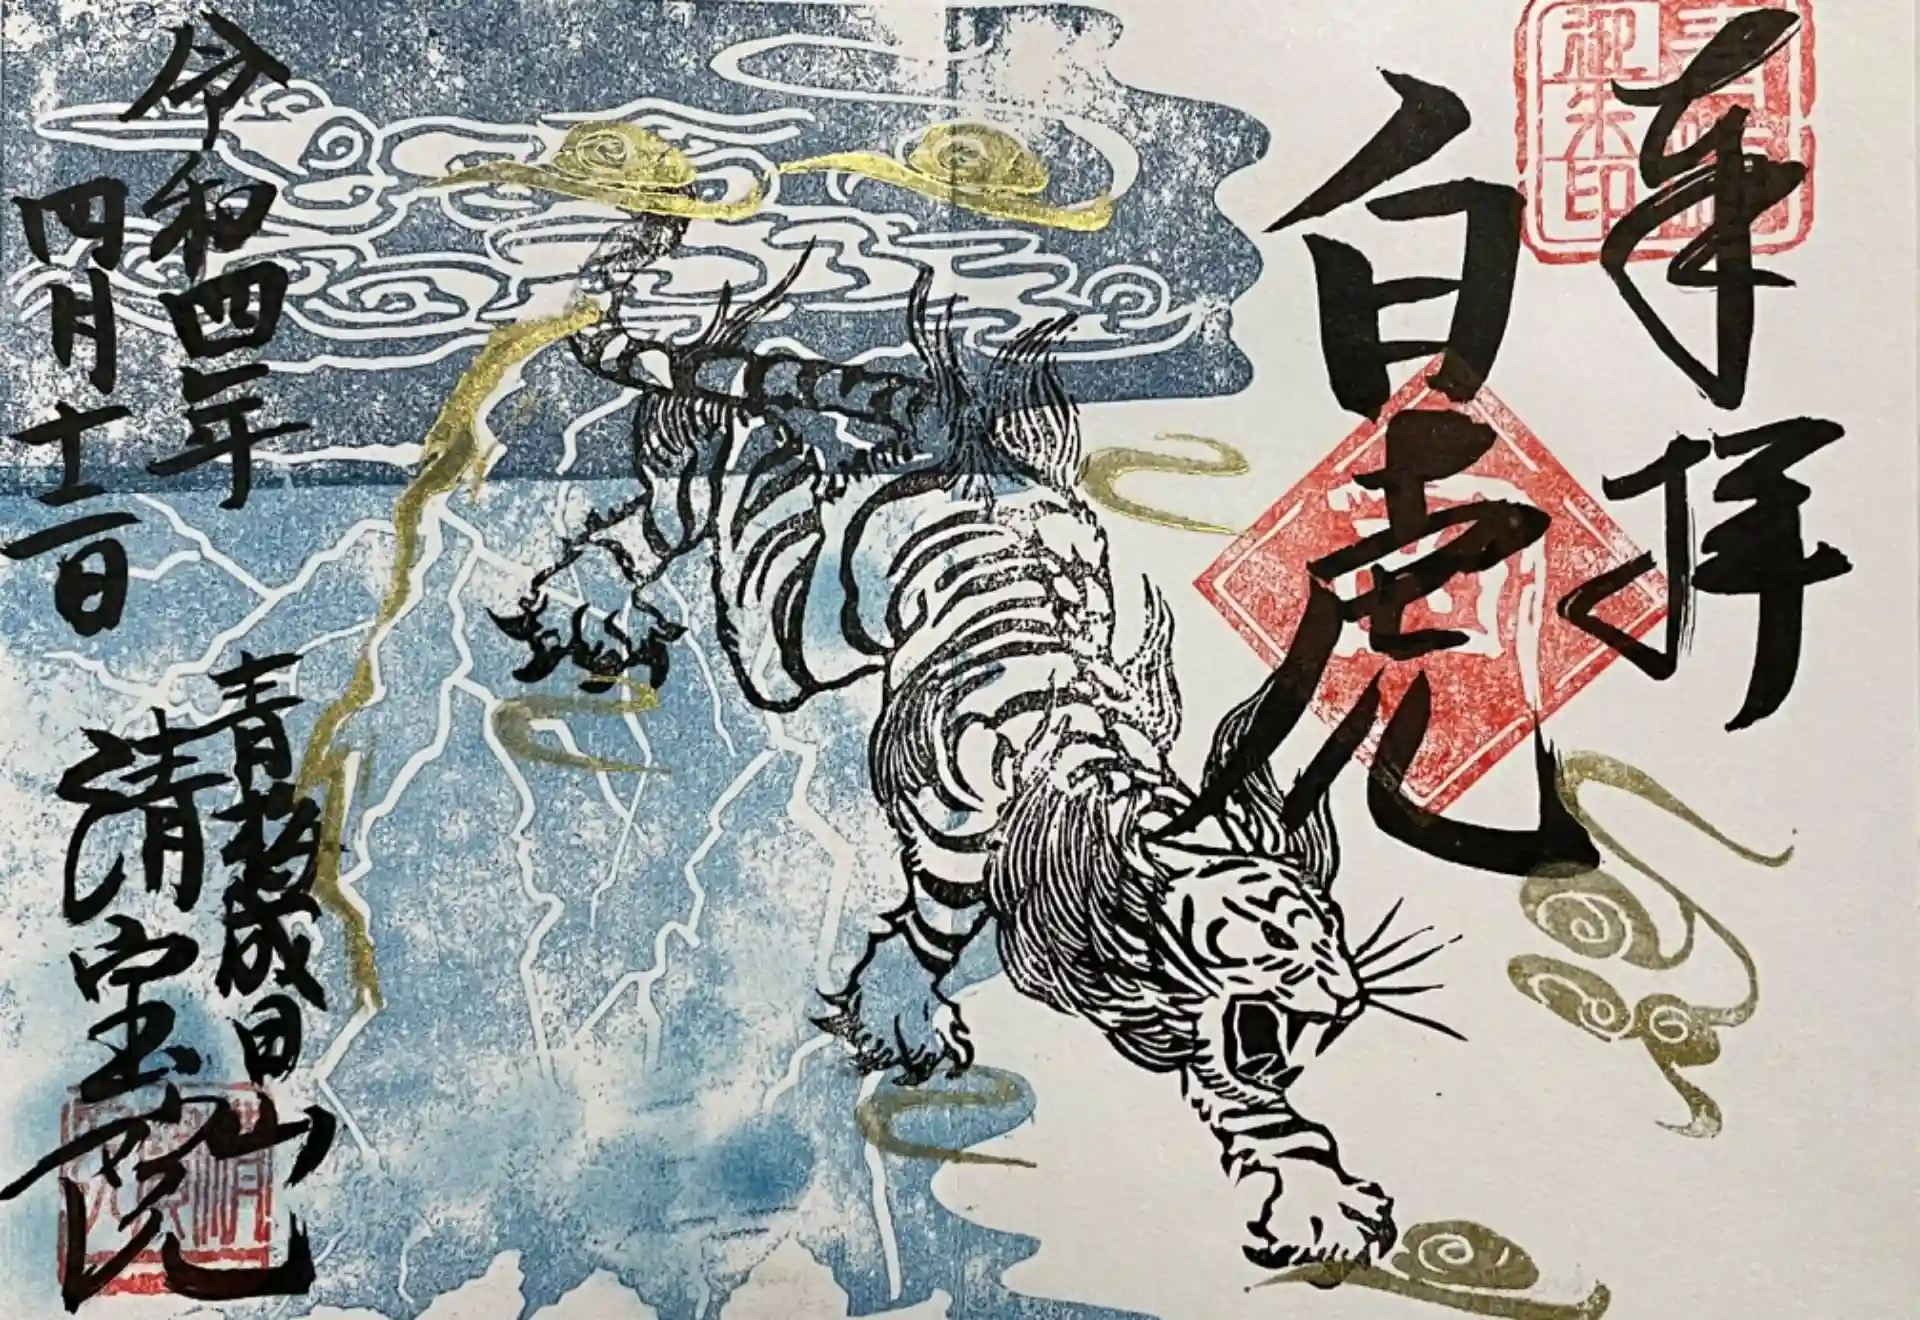 奉拝
白虎
令和四年
四月十二日
青梅成田山
清宝院
御朱印